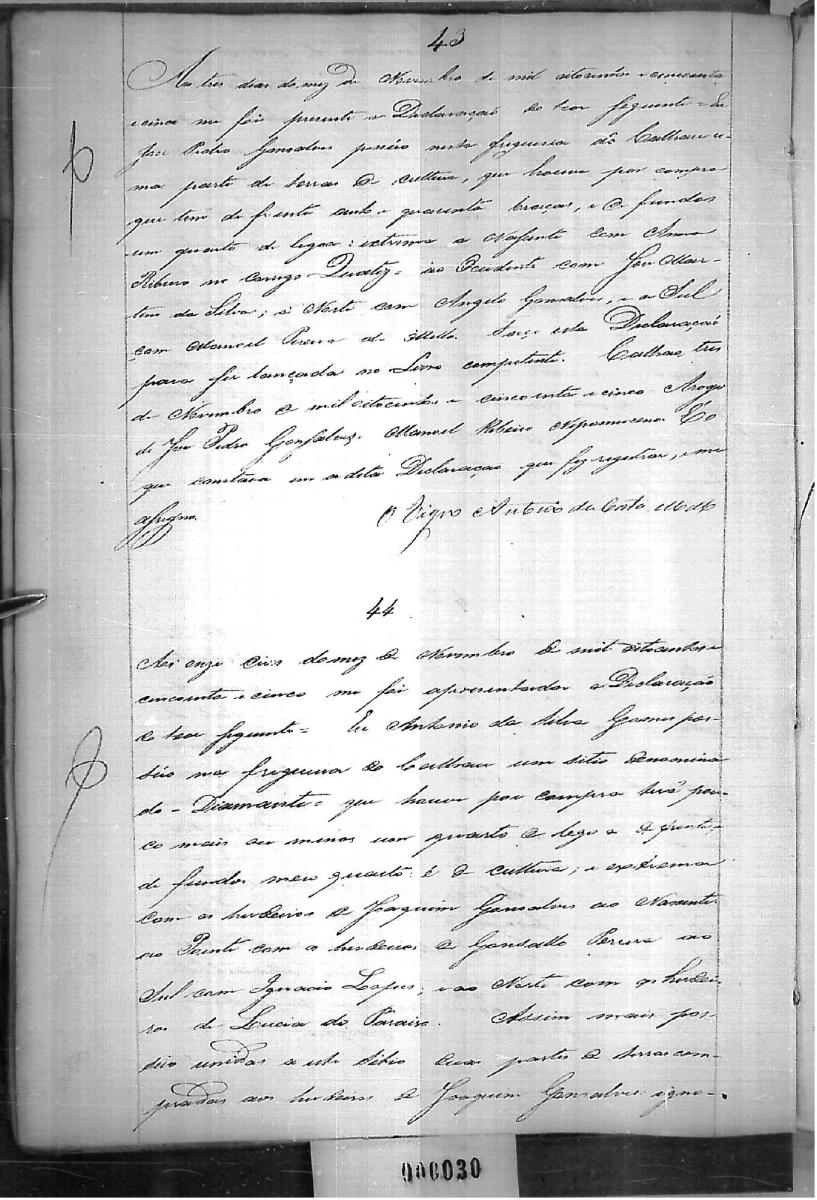 43
Aos tres dias do mez de Novembro de mil oitocentos e cincoenta
e cinco me foi presente a Declaração do teor seguinte = Eu
José Pedro Gonsalves possúo nesta freguesia do Calhau u-
ma parte de terras de cultura, que houve por compra
que tem de frente cento e quarenta braças, e de fundos
um quarto de legoa: extrema a Nascente com Anna
Ribeiro no corrego ao Occidente com José Mar-
tins da Silva; a Norte com Angelo Gonsalves, e ao Sul
com Manoel Pereira de Mello. Faço esta Declaração
para ser lançada no Livro competente. Calhao, tres
de Novembro de mil oitocentos e cincoenta e cinco Arogo
de José Pedro Gonsalves. Manoel Ribeiro Nepomuceno. É o
que constava em a dita Declaração que fiz registrar, e me
assigno. O Vigro Antonio da Costa
44
Aos onze dias do mez de Novembro de mil oitocentos e
cincoenta e cinco me foi apresentada a Declaração
do teor seguinte = Eu Antonio da Silva Gomes pos-
súo na freguesia do Calhau um sitio denomina
do = Diamante = que houve por compra terá pou-
co mais ou menos um quarto de legoa de frente, e
de fundos meio quarto: é de cultura; e extrema
com os herdeiros de Joaquim Gonsalves ao Nascente
ao Poente com os herdeiros de Gonsallo Pereira ao
Sul com Ignacio Lopes; e ao Norte com os herdei-
ros de Lucia do Paraiso. Assim mais pos-
súo unidas a este sitio duas partes de terras com-
pradas aos herdeiros de Joaquim Gonsalves igno-
000030